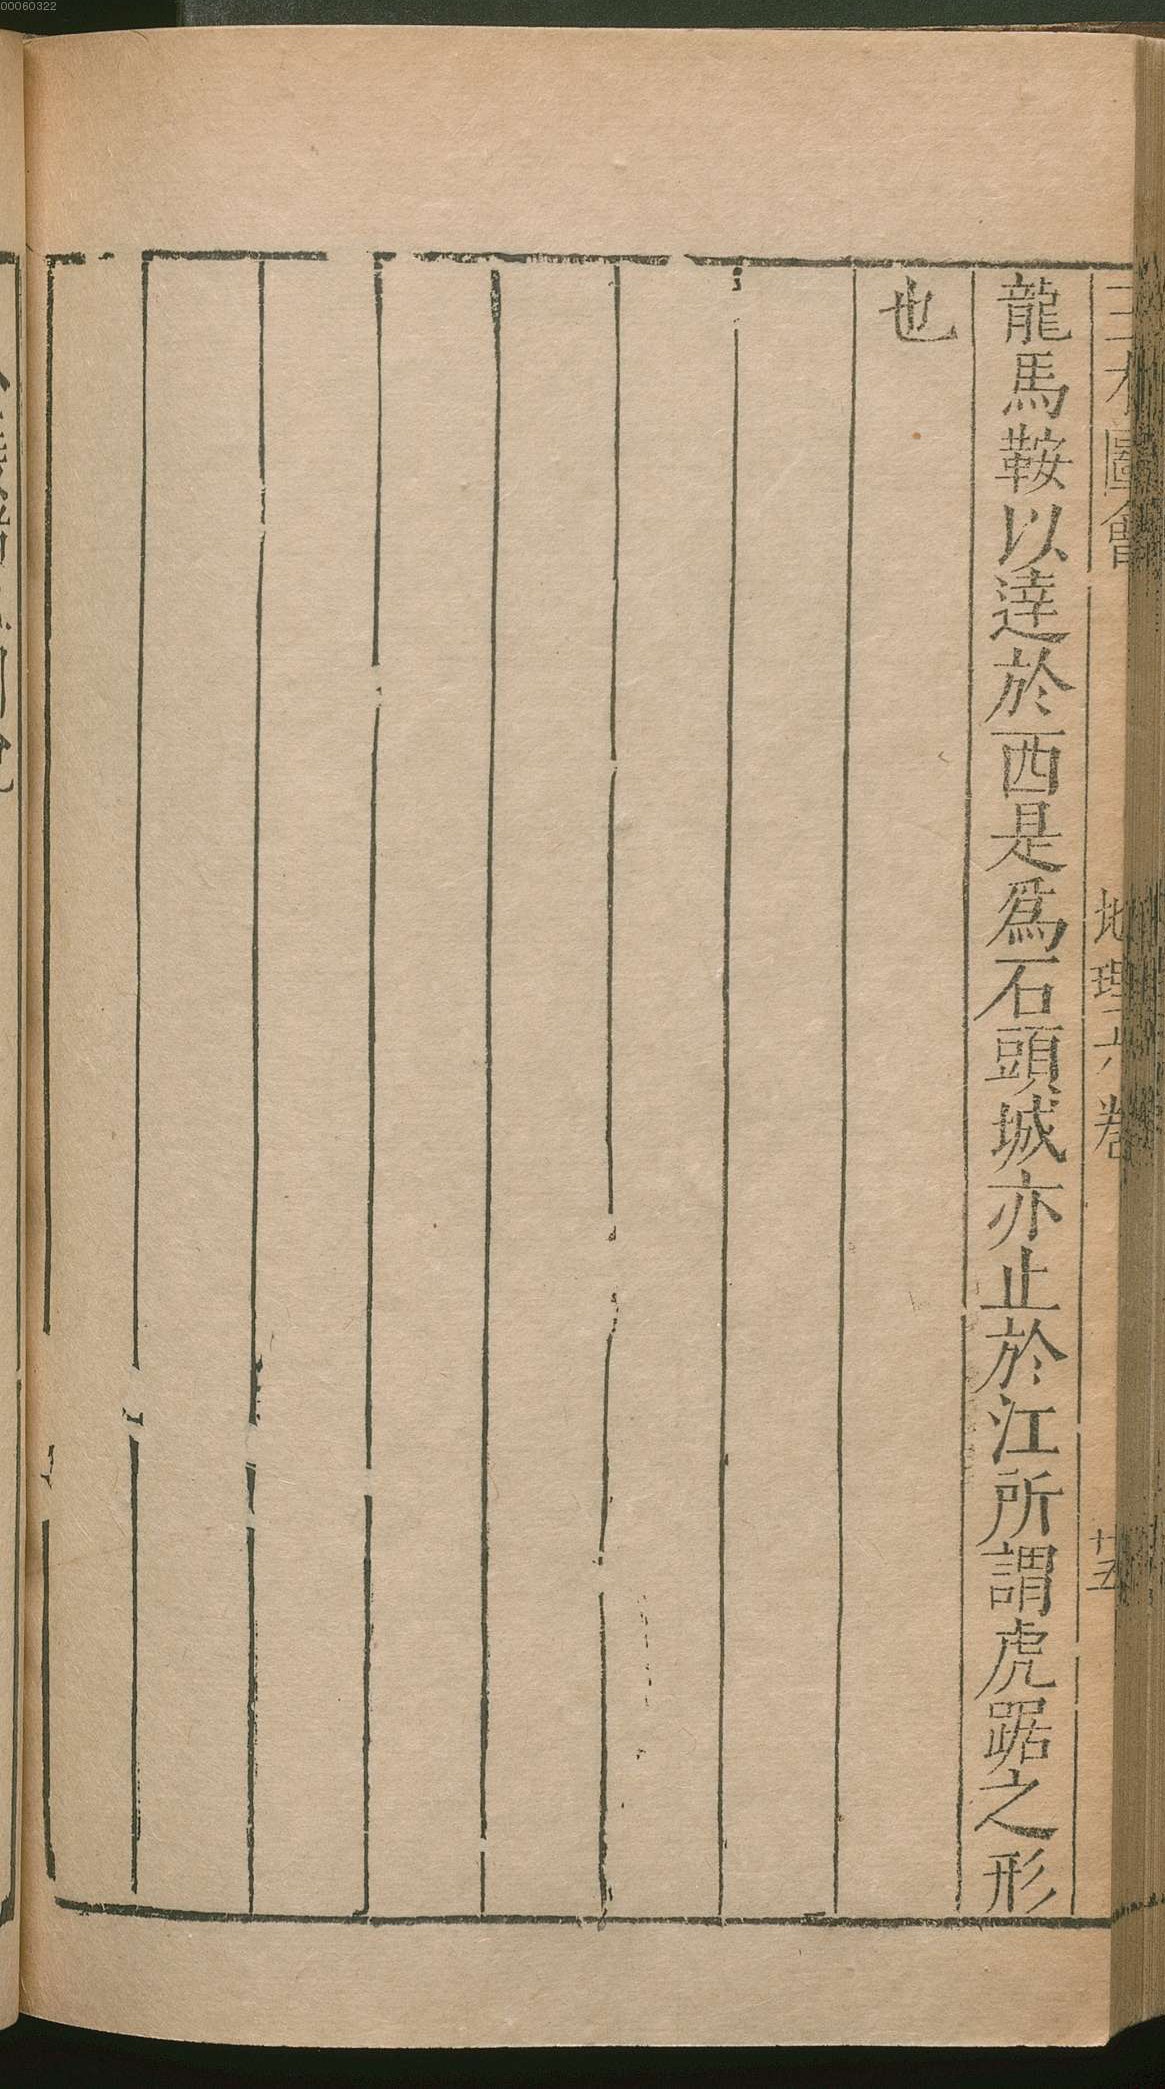 00060322
三才圖會 地理六卷 十五
龍馬鞍以達於西是爲石頭城亦止於江所謂虎踞之形
也